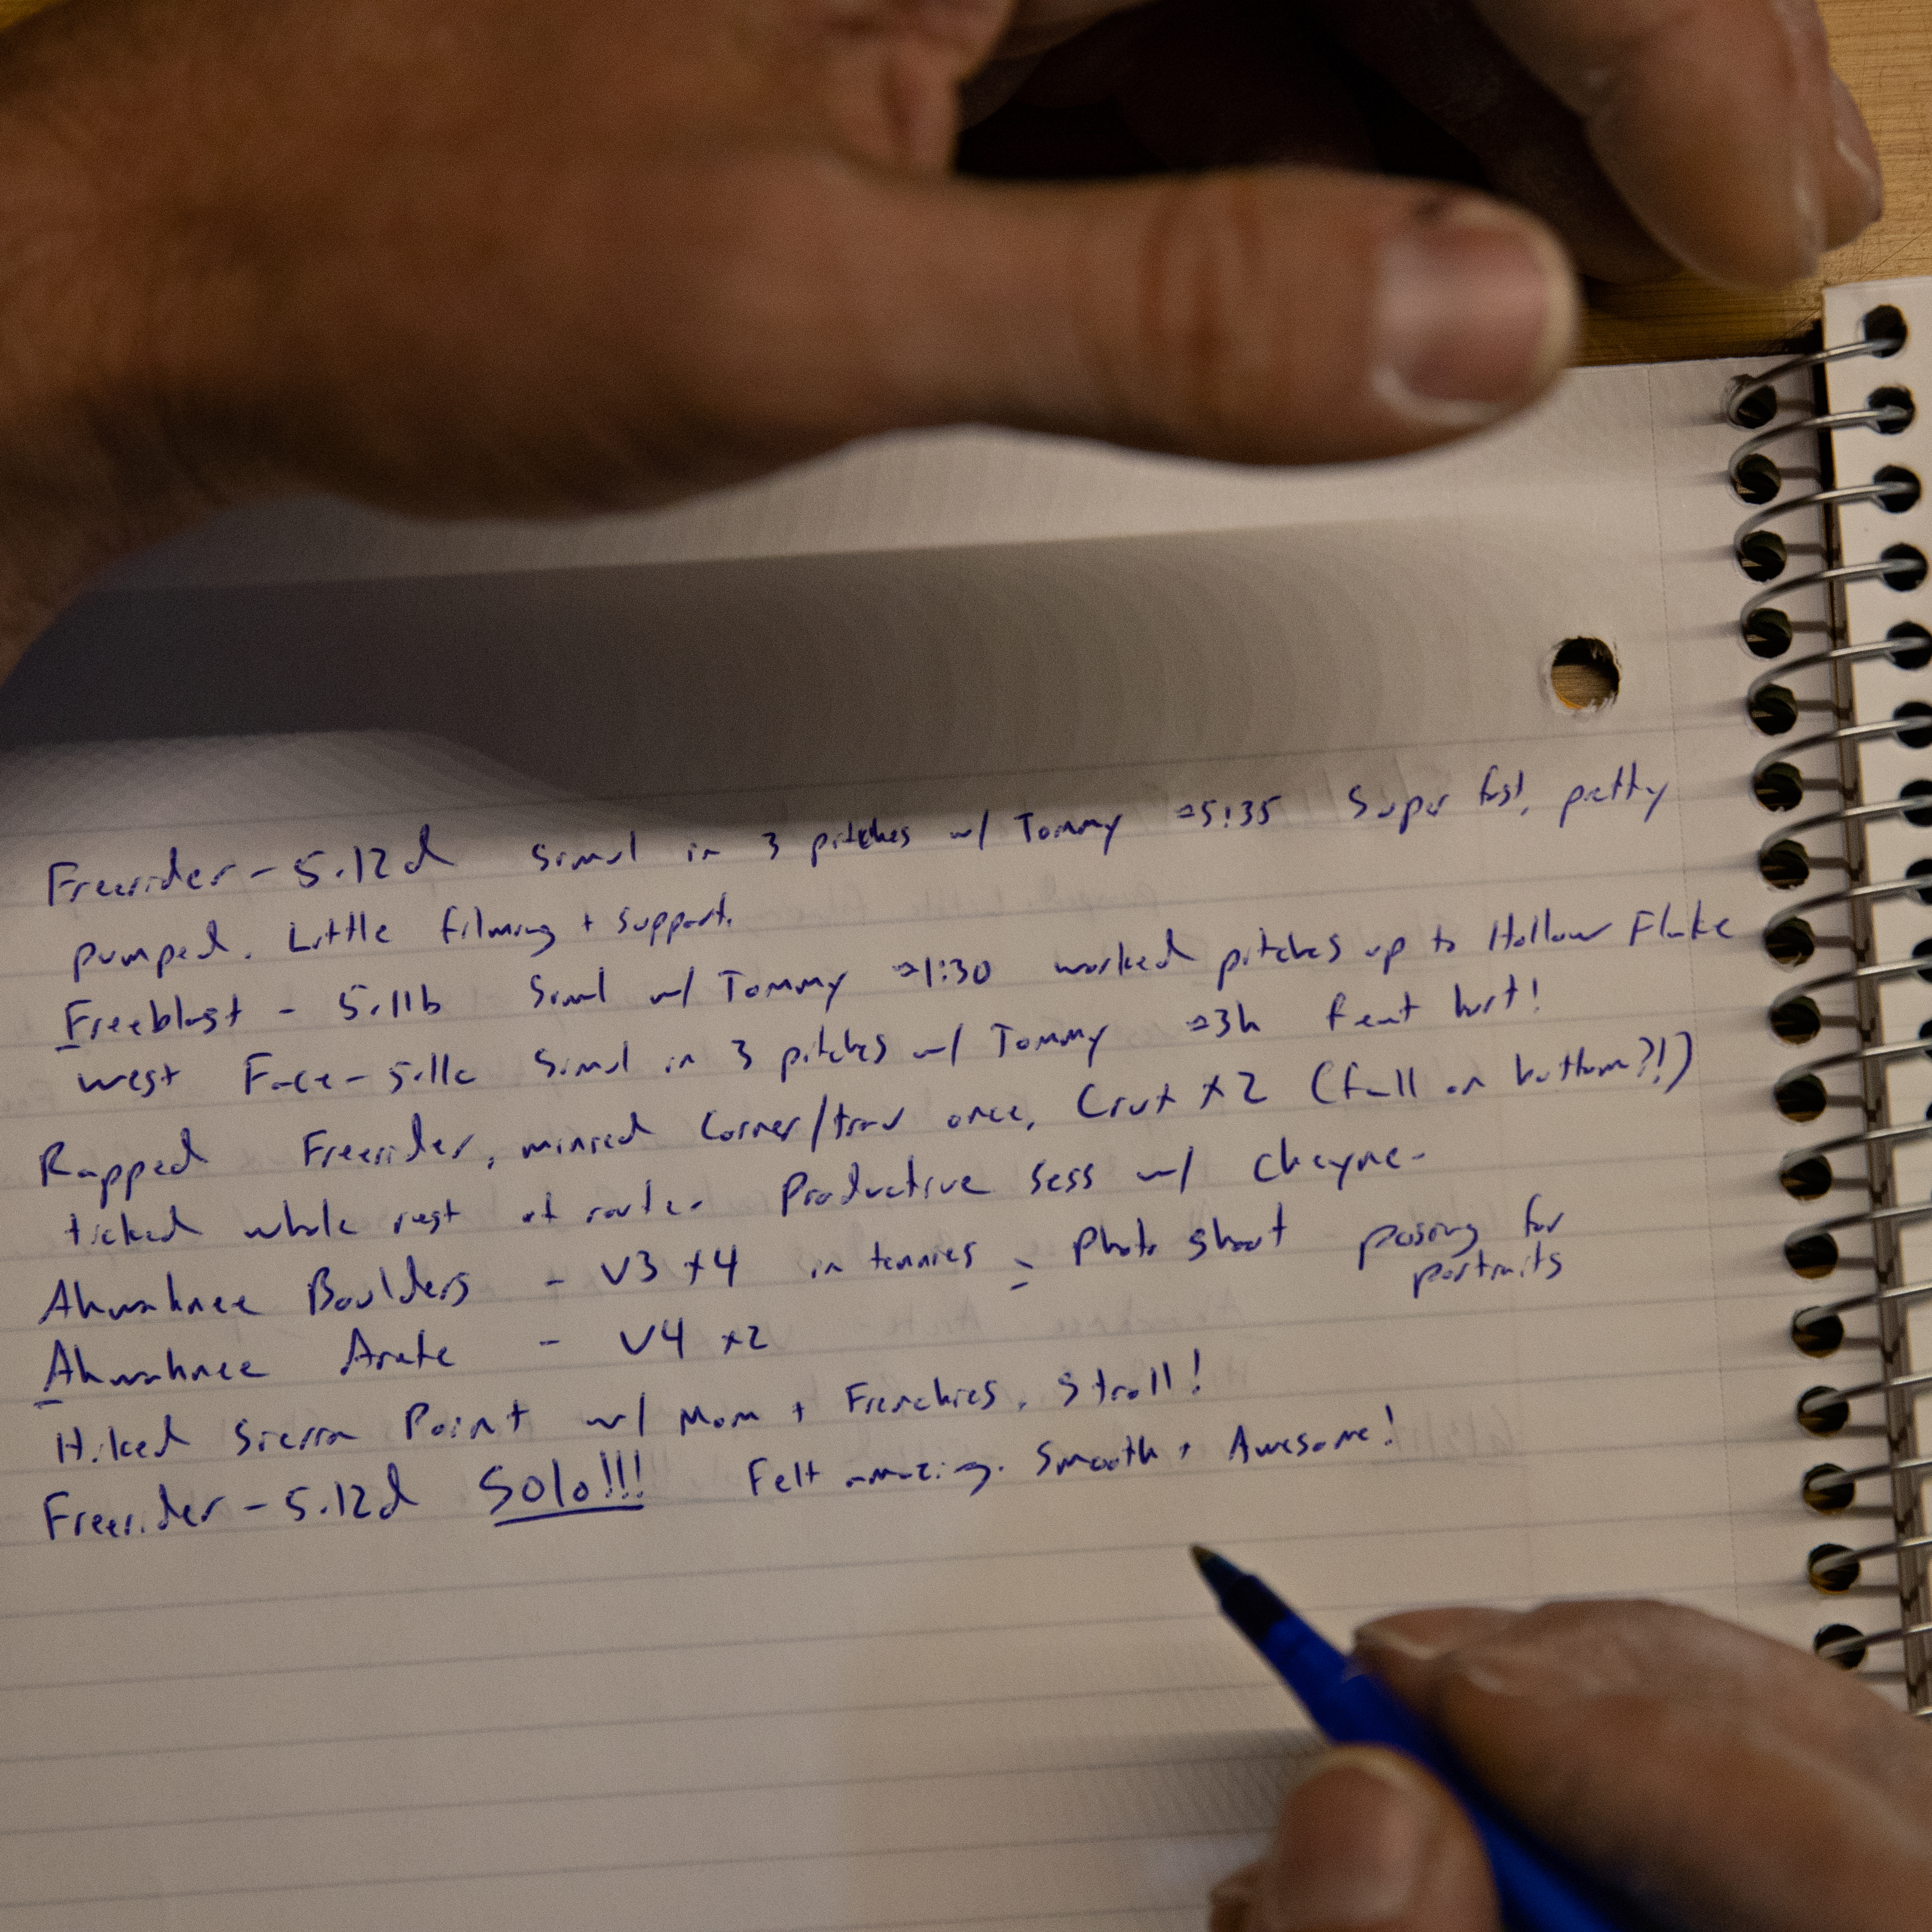 Freerider - 5.12d Simul in 3 pitches w/ Tommy →5:35 Super fast, pretty
pumped. Little filming + support.
Freeblast - 5.11b Simul w/ Tommy →1:30 worked pitches up to Hollow Flake
West Face - 5.11c Simul in 3 pitches w/ Tommy →3h feet hurt!
Rapped Freerider, minied Corner/trav once, Crux x2 (fall on bottom?!)
ticked whole rest of route. Productive sess w/ Cheyne.
Ahwahnee Boulders - V3 x4 in tennies - Photo shoot posing for
portraits
Ahwahnee Arete - V4 x2
Hiked Sierra Point w/ Mom + Frenchies. Stroll!
Freerider - 5.12d Solo!!! Felt amazing. Smooth + Awesome!